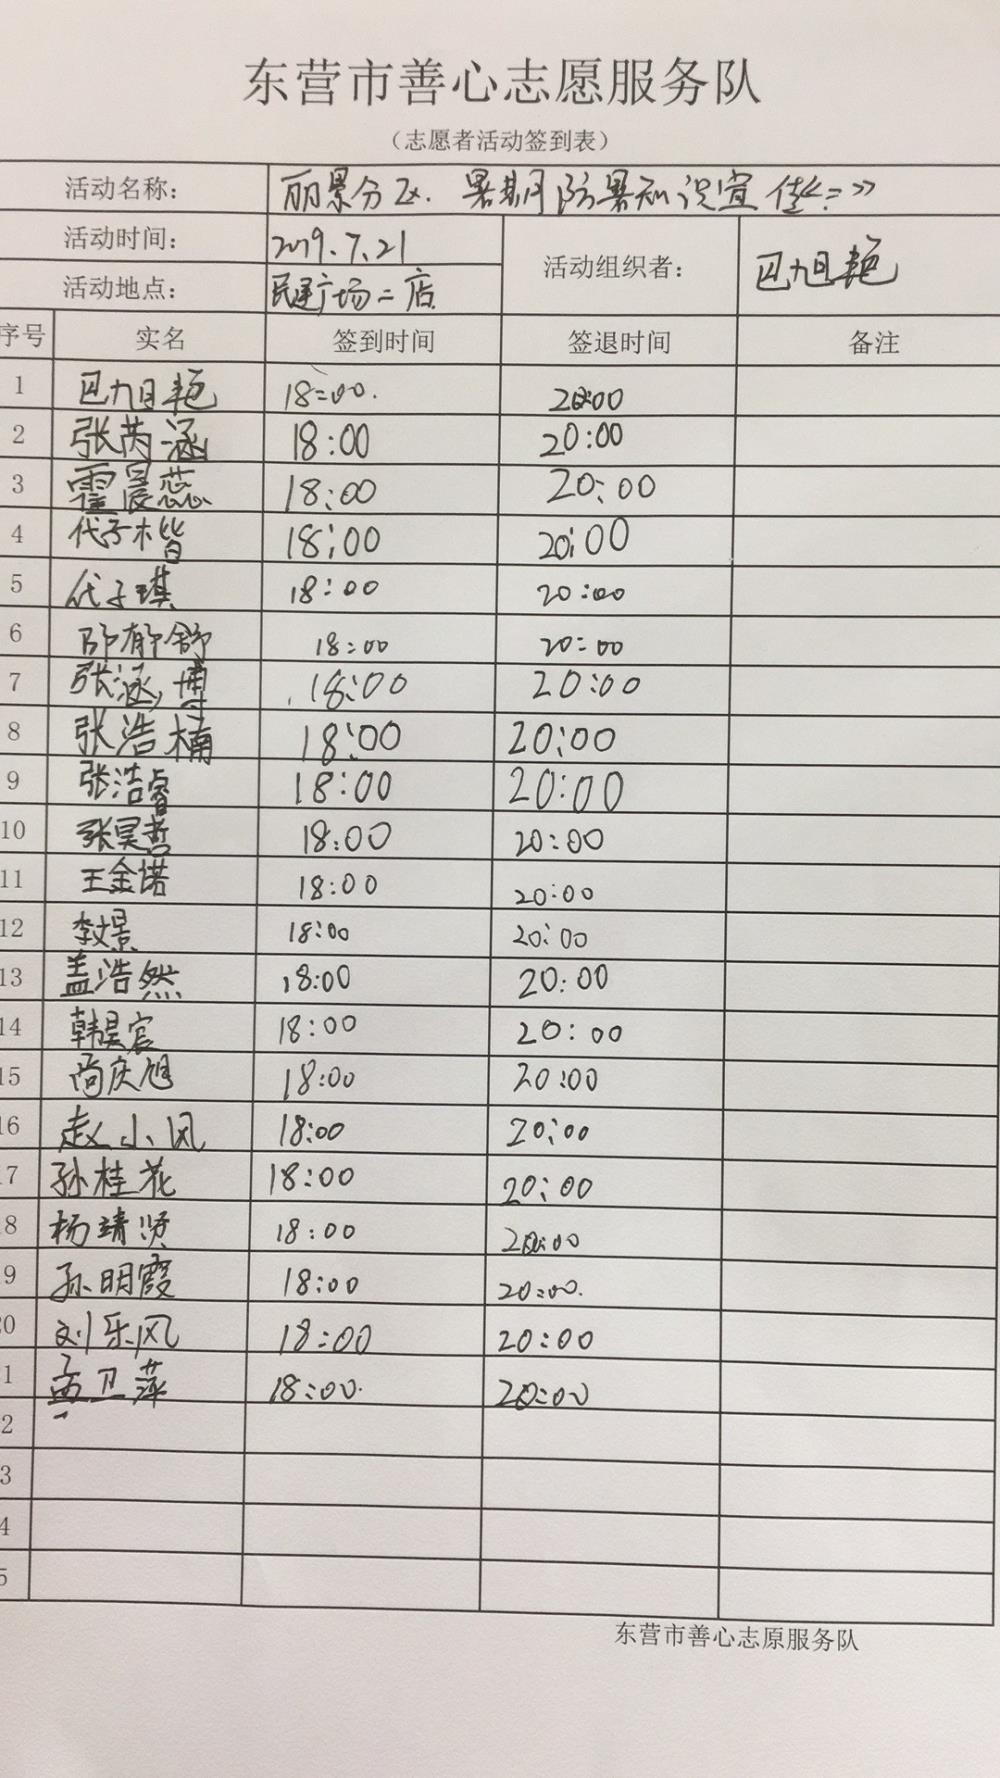 东营市善心志愿服务队
（志愿者活动签到表）
活动名称： 丽景分区.暑期防暑知识宣传《二》
活动时间： 2019.7.21 活动组织者： 巴旭艳
活动地点： 民建广场二店
序号 实名 签到时间 签退时间 备注
1 巴旭艳 18:00. 20:00
2 张芮涵 18:00 20:00
3 霍晨蕊 18:00 20:00
4 代子楷 18:00 20:00
5 代子琪 18:00 20:00
6 邵郁舒 18:00 20:00
7 张涵博 18:00 20:00
8 张浩楠 18:00 20:00
9 张浩睿 18:00 20:00
10 张昊哲 18:00 20:00
11 王金诺 18:00 20:00
12 李璟 18:00 20:00
13 盖浩然 18:00 20:00
14 韩昊宸 18:00 20:00
15 尚庆旭 18:00 20:00
16 赵小风 18:00 20:00
7 孙桂花 18:00 20:00
8 杨靖贤 18:00 20:00
9 孙明霞 18:00 20:00.
0 刘乐风 18:00 20:00
1 孟卫萍 18:00. 20:00
2
3
4
5
东营市善心志原服务队